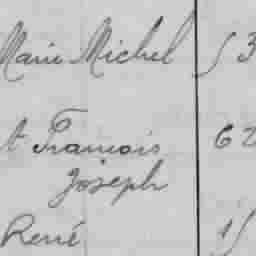 Marie Michel 53
t François 62
Joseph
René 15